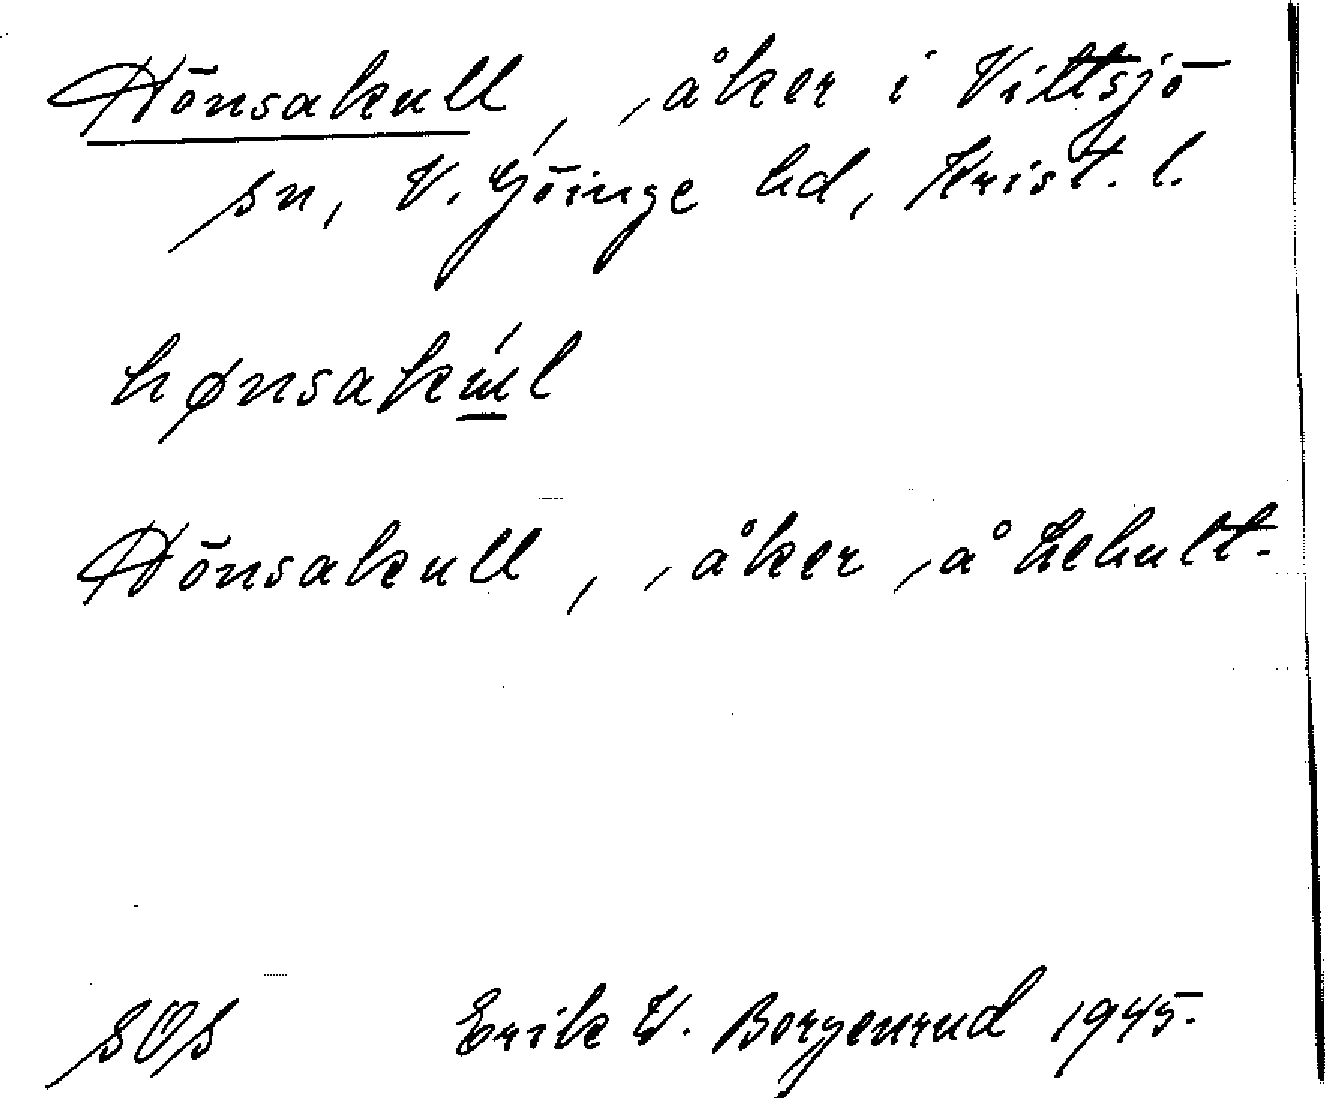 Hönsakull, åker i Vittsjö
sn, V. Göinge hd, Krist. l.
hønsakúl
Hönsakull, åker å Lehult.
SOS Erik W. Borgenrud 1945.